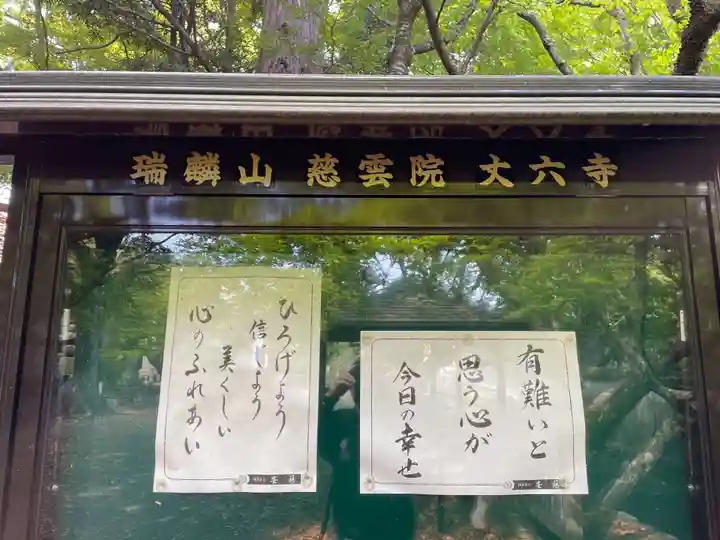 瑞麟山 慈雲院 丈六寺
有難いと
思う心が
今日の幸せ
ひろげよう
信じよう
美くしい
心のふれあい